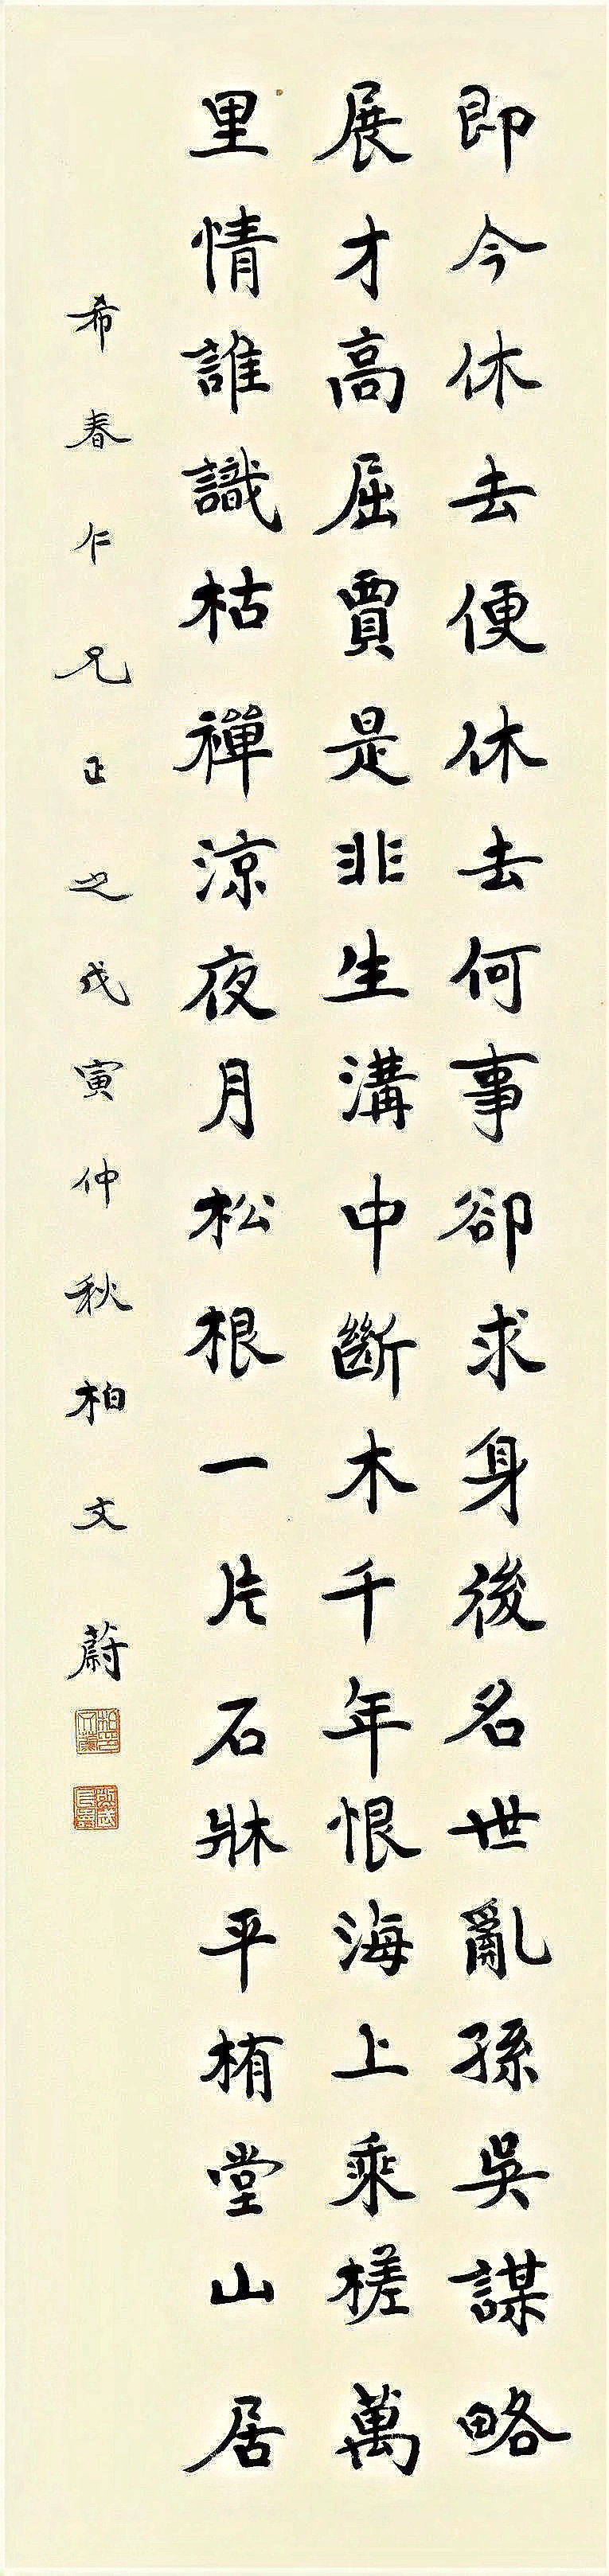 即今休去便休去何事卻求身後名世亂孫吳謀略
展才高屈賈是非生溝中斷木千年恨海上乘槎萬
里情誰識枯禪涼夜月松根一片石牀平栯堂山居
希春仁兄正之戊寅仲秋柏文蔚
柏文蔚印